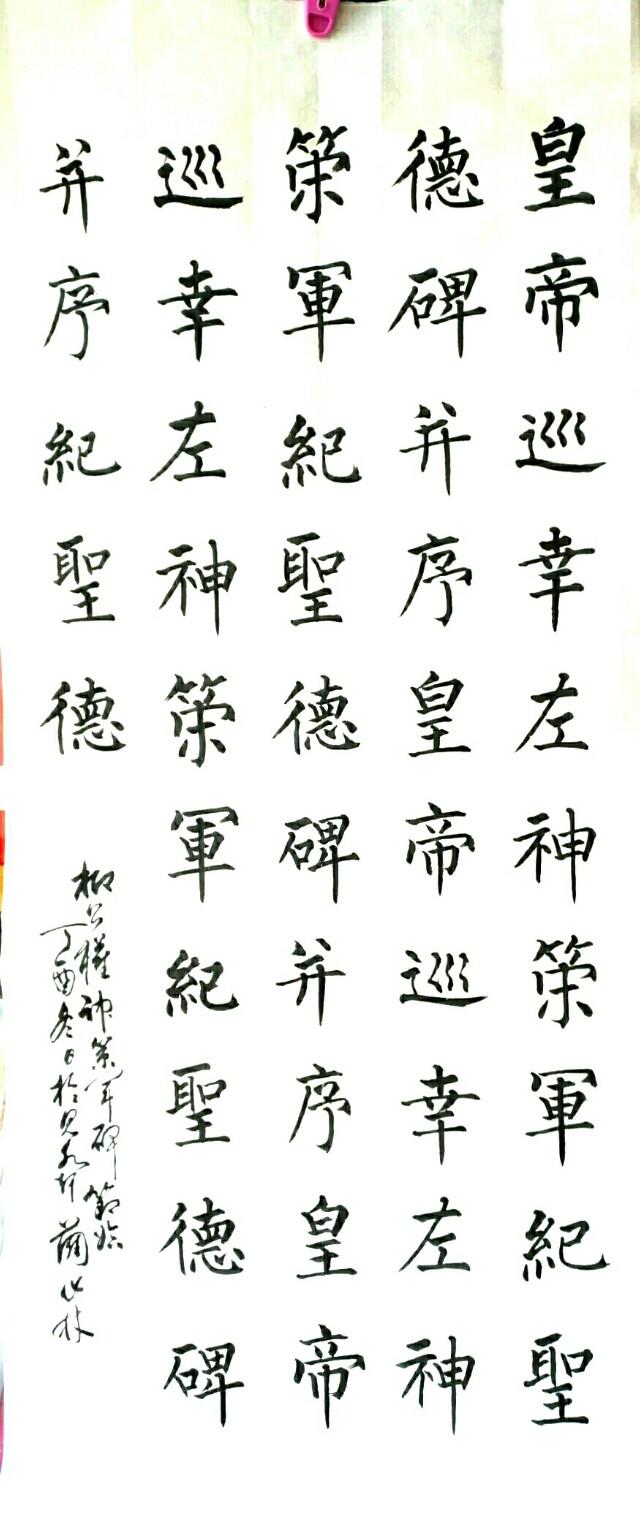 皇帝巡幸左神策軍紀聖
德碑并序皇帝巡幸左神
策軍紀聖德碑并序皇帝
巡幸左神策軍紀聖德碑
并序紀聖德
柳公權神策軍碑節臨
丁酉冬日於